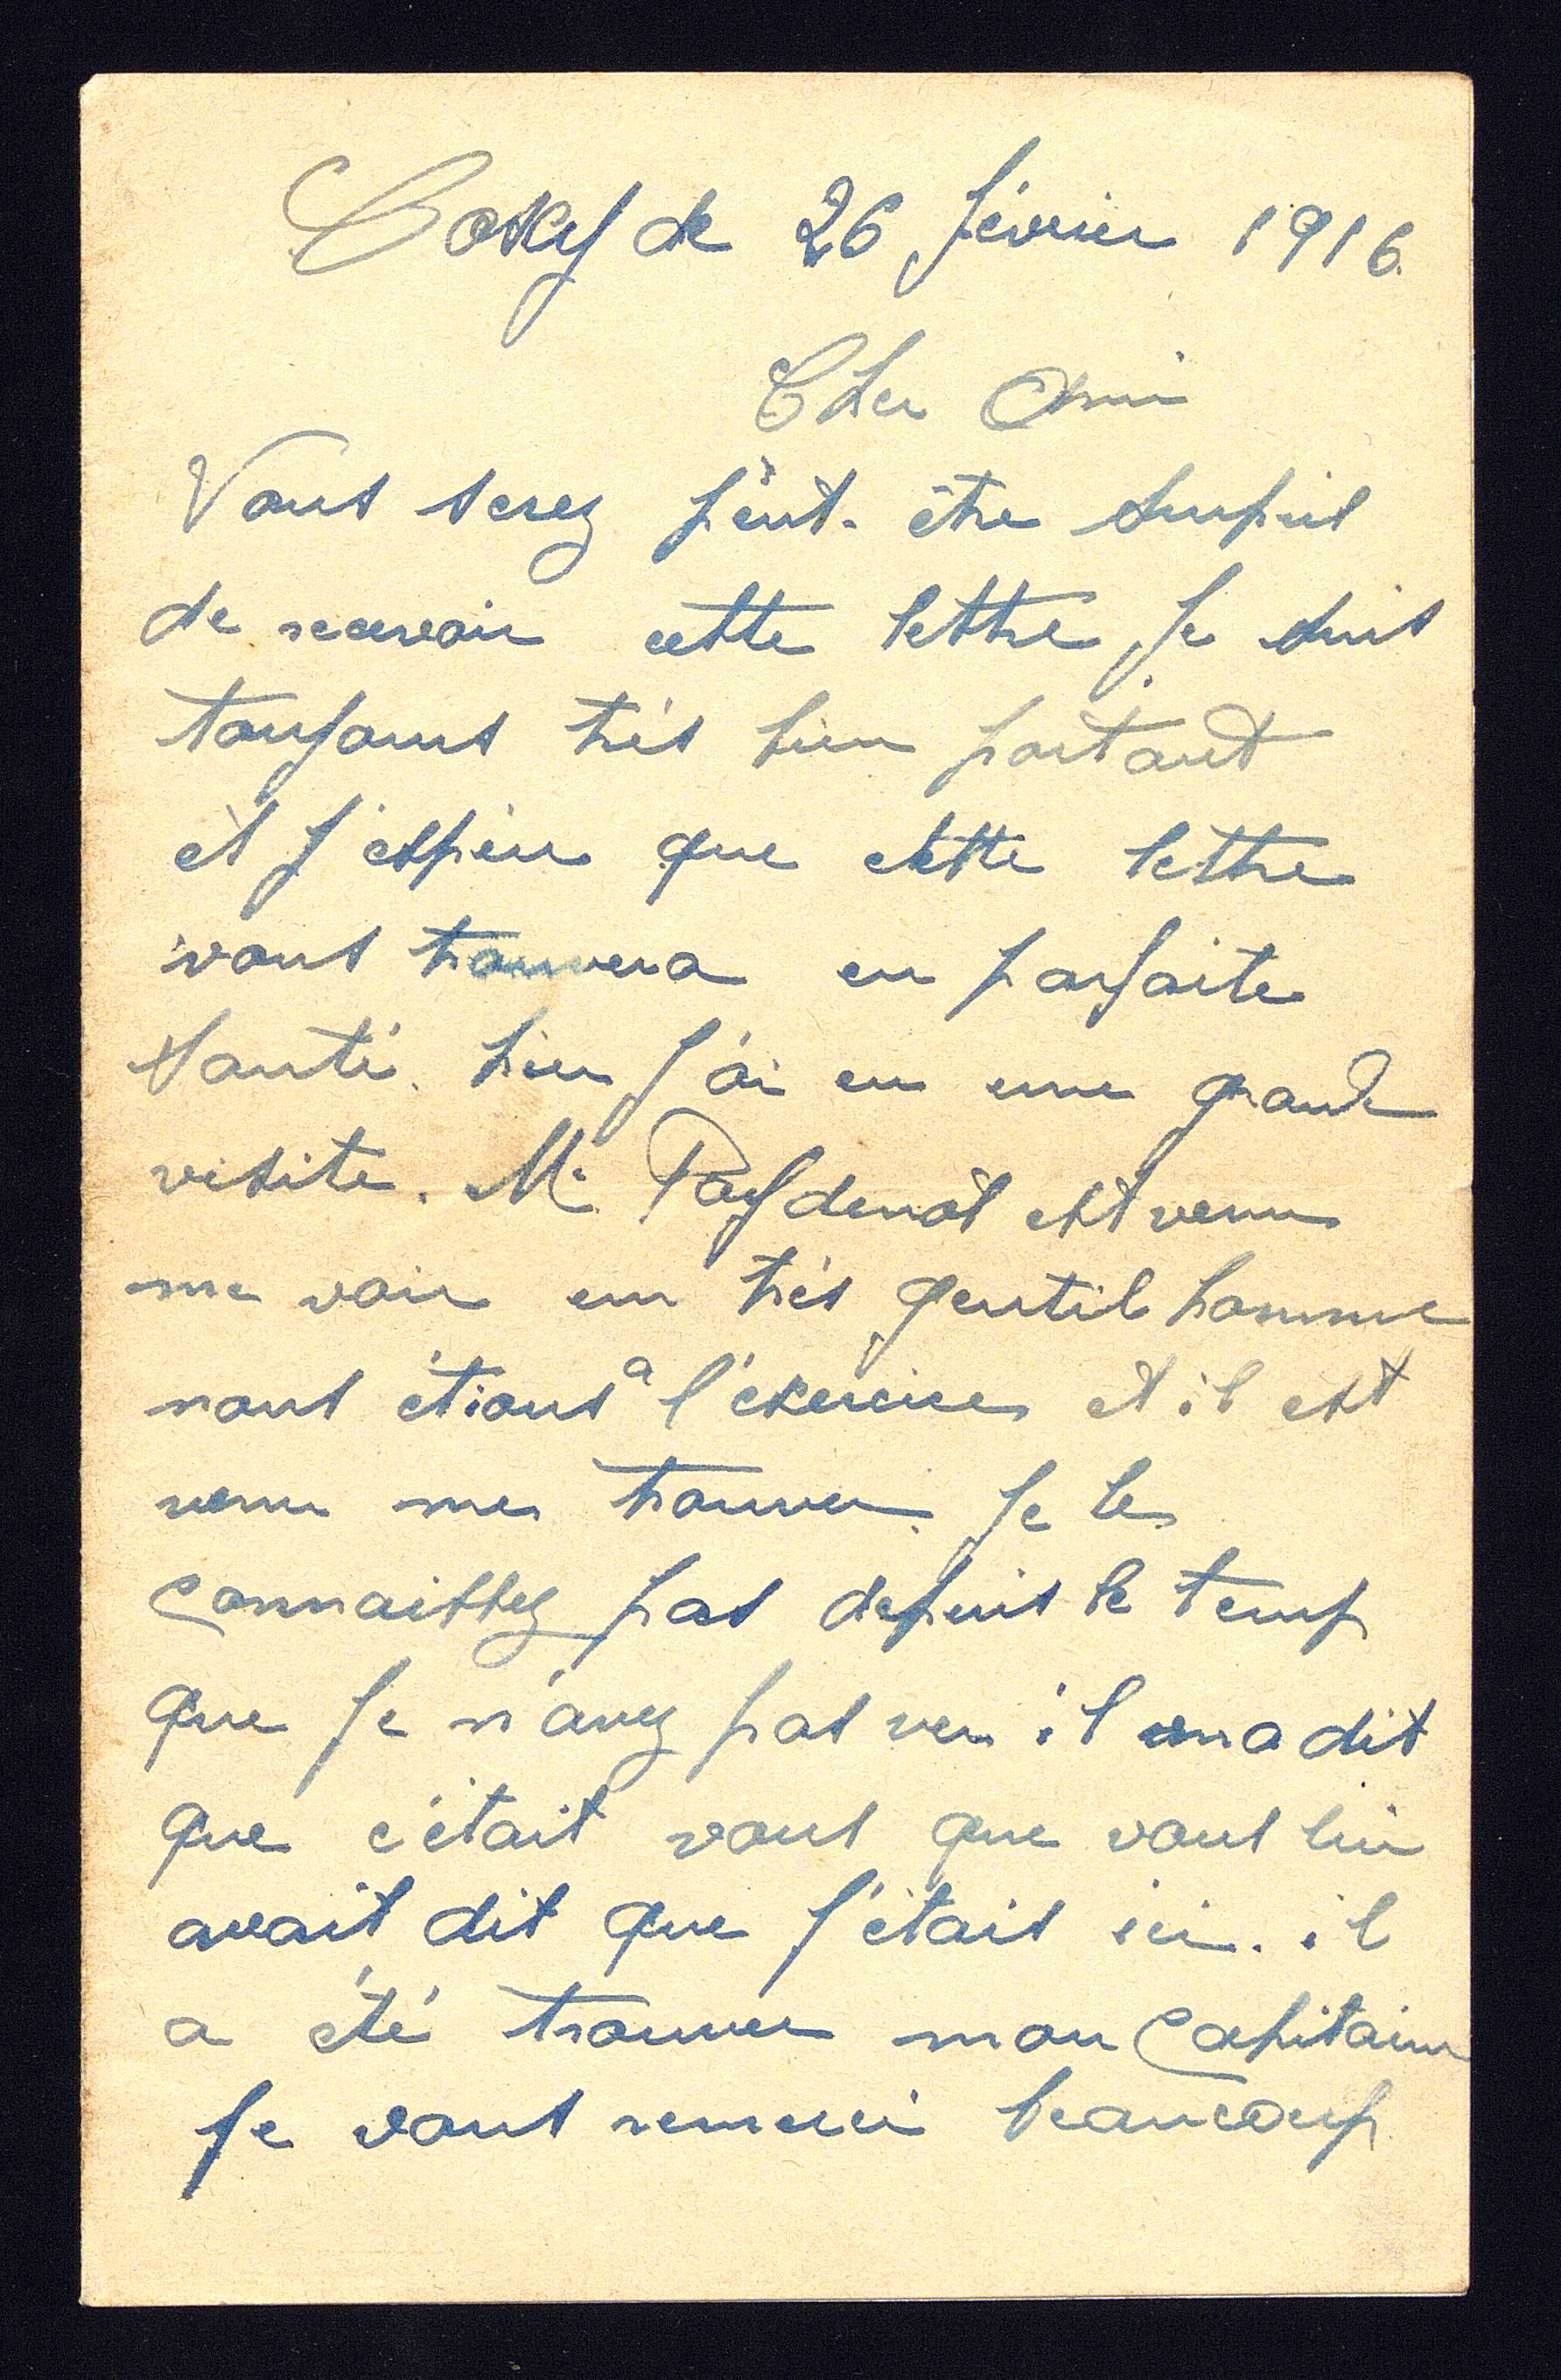 Coxyde 26 février 1916
Cher Ami
Vous serez peut-être surpris
de recevoir cette lettre Je suis
toujours très bien portant
et j'espère que cette lettre
vous trouvera en parfaite
santé. hier J'ai eu une grande
visite. Mr est venu
me voir un très gentil homme
nous étions a l'exercice et il est
venu me trouver. Je le
connaissez pas depuis le temp
que Je n'avez pas vu il ma dit
que c'était vous que vous lui
avait dit que J'étais ici. il
a été trouver mon Capitaine
Je vous remerci beaucoup